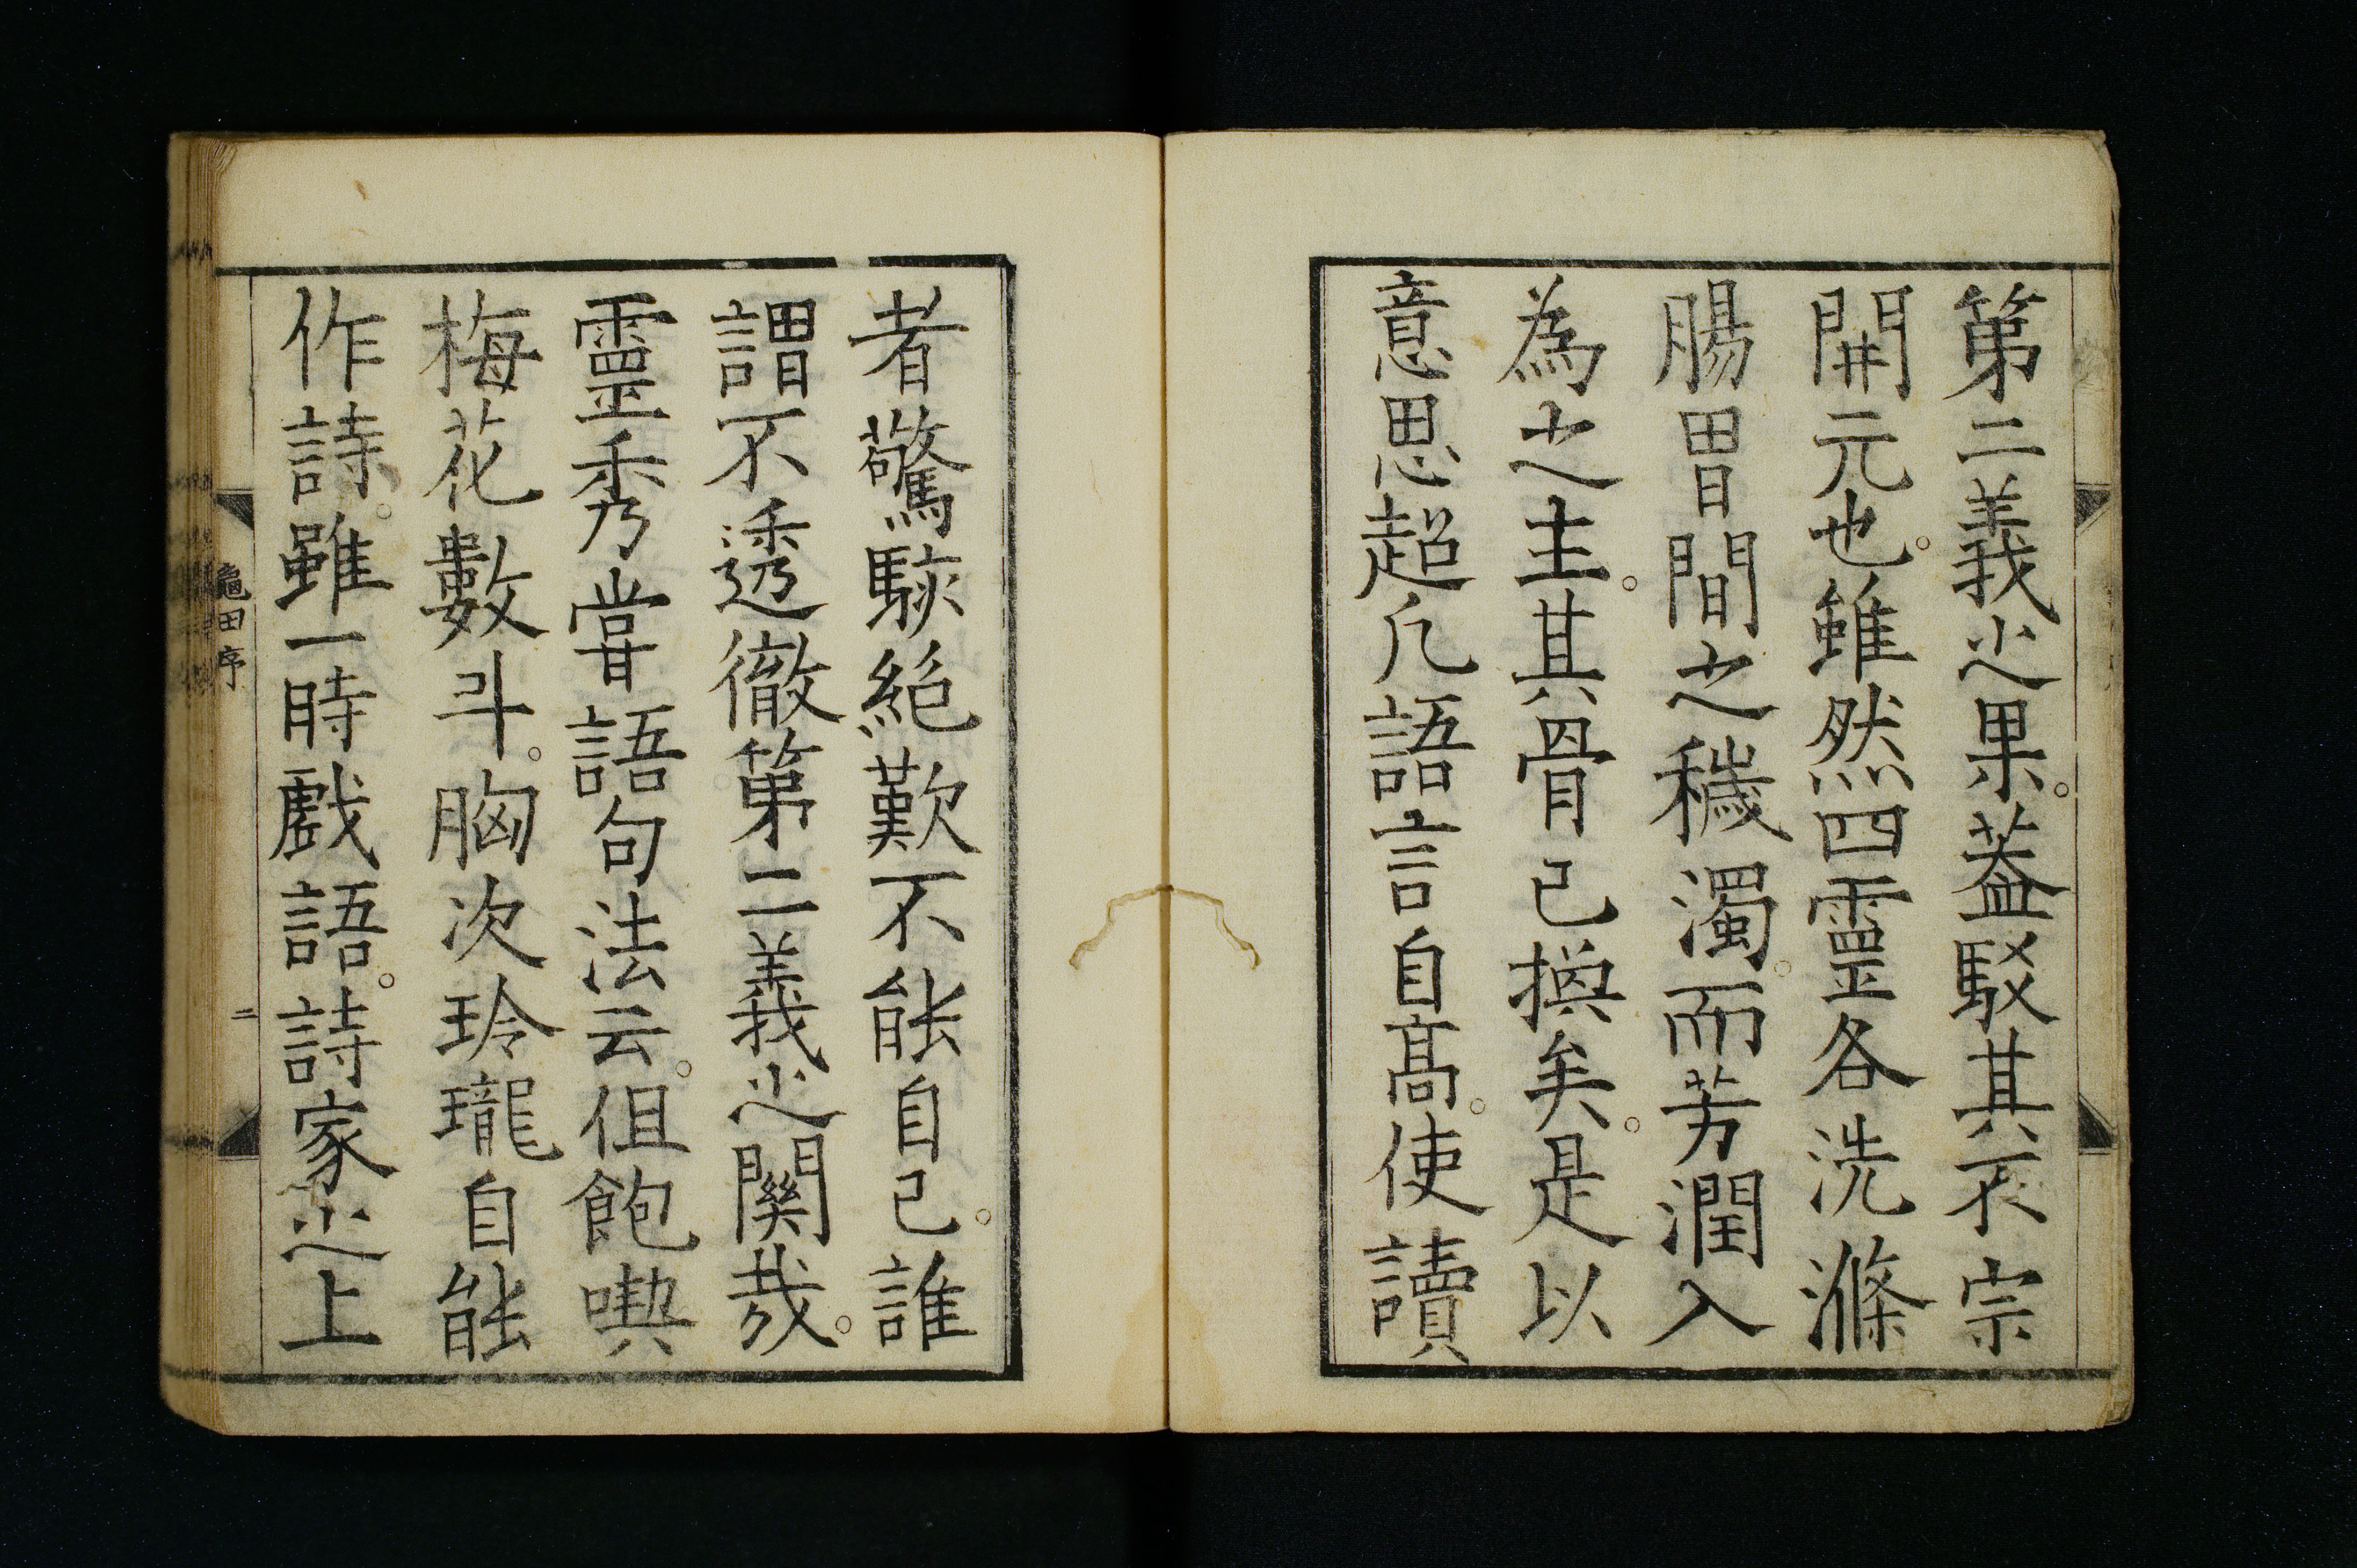 第二義之果。葢駁其不宗
開元也。雖然四靈各洗滌
膓胃間之穢濁。而芳潤入
為之主。其骨已換矣。是以
意思超凡語言自髙。使讀
者驚駭絕歎不能自已。誰
謂不透徹第二義之關哉。
靈秀甞語句法云。但飽喫
梅花數斗。胸次玲瓏自能
作詩。雖一時戲語。詩家之上
龜田序
二